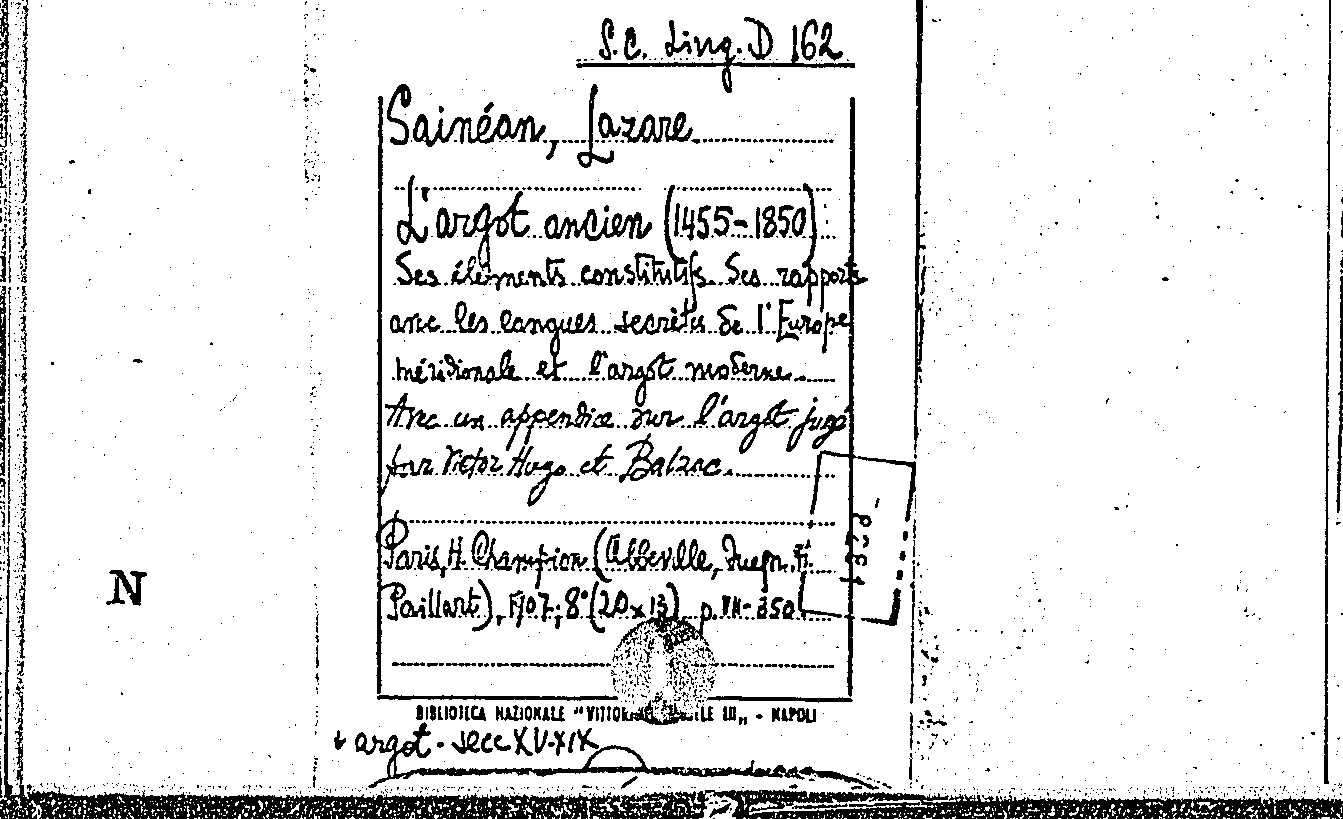 S.C. Ling. D 162
Sainéan, Lazare
L'argot ancien (1455-1850)
Ses éléments constitutifs. Ses rapports
avec les langues secrètes de l'Europe
méridionale et l'argot moderne.
Avec un appendice sur l'argot jugé
par Victor Hugo et Balzac.
Paris, H. Champion (Abbeville, F.
Paillart), 1907; 8° (20x13), p. VII-350.
N
BIBLIOTECA NAZIONALE "VITTORIO III" - NAPOLI
argot - secc XV-XIX